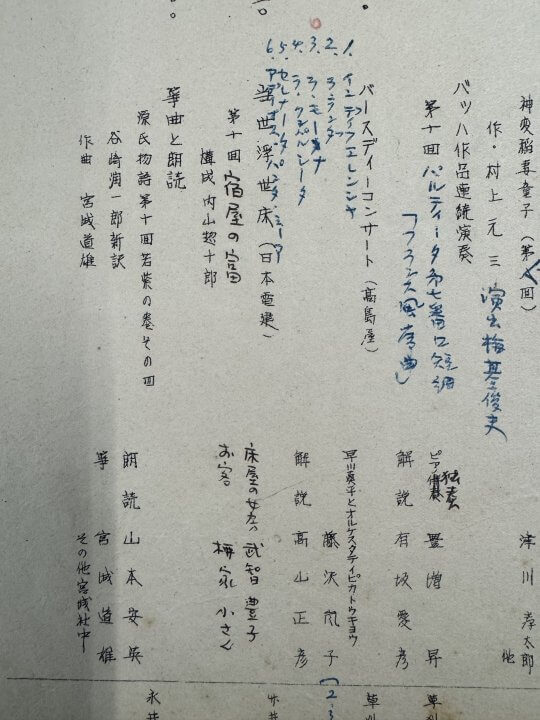 神変稲妻童子（第八回）
作・村上元三 演出 梅基俊夫
津川孝太郎
他
バッハ作品連続演奏
第十回 パルティータ第七番ロ短調
「フランス風序曲」
ピアノ独奏 豊増昇
解説 有坂愛彦
バースディーコンサート（高島屋）
早川真平とオルケスタティピカトウキョウ
藤沢嵐子
解説 高山正彦
1. インディフェレンシヤ
2.
3. ラ・モーチャ
4. ラ・クンパルシータ
5.
6.
当世浮世床（日本電建）
第十回 宿屋の富
構成 内山惣十郎
床屋の女房 武智豊子
お客 柳家小さん
箏曲と朗読
源氏物語第十回若紫の巻その四
谷崎潤一郎新訳
作曲 宮城道雄
朗読 山本安英
箏 宮城道雄
その他宮城社中